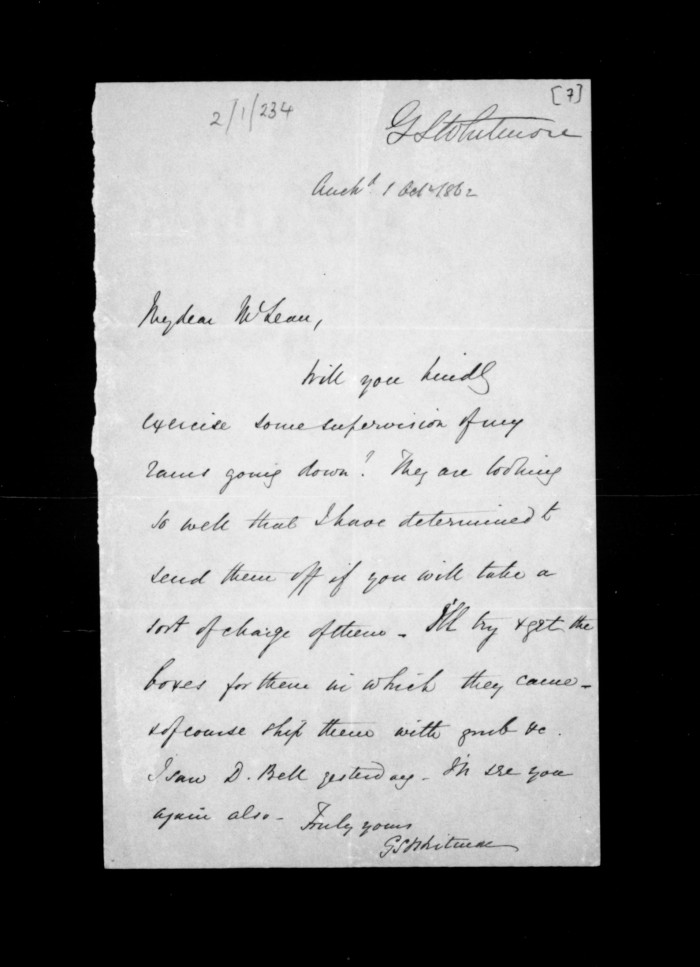 [7]
2/1/234
G S Whitmore
Auckd. 1 Oct 1862
My dear McLean,
Will you kindly
exercise some supervision of my
rams going down? They are looking
so well that I have determined to
send them off if you will take a
sort of charge of them - I'll try & get the
boxes for them in which they came -
& of course ship them with grub &c.
I saw D. Bell yesterday - I'll see you
again also - Truly yours
G S Whitmore